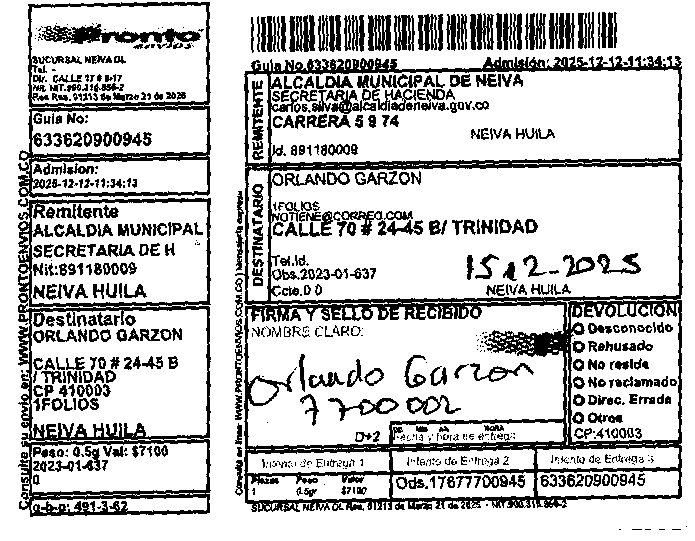 Pronto
envios
SUCURSAL NEIVA DL
Tel. -
Dir. CALLE 17 # 8-17
NIT.900.310.856-2
Res Res. 01213 de Marzo 21 de 2025
Guia No:
633620900945
Admision:
2025-12-12-11:34:13
Remitente
ALCALDIA MUNICIPAL
SECRETARIA DE H
Nit:891180009
NEIVA HUILA
Destinatario
ORLANDO GARZON
CALLE 70 # 24-45 B
/ TRINIDAD
CP 410003
1FOLIOS
NEIVA HUILA
Peso: 0.5g Val: $7100
2023-01-637
0
g-b-p: 491-3-62
Consulte su envio en: WWW.PRONTOENVIOS.COM.CO
Guia No.633620900945 Admisión: 2025-12-12-11:34:13
REMITENTE
ALCALDIA MUNICIPAL DE NEIVA
SECRETARIA DE HACIENDA
carlos.silva@alcaldianeiva.gov.co
CARRERA 5 9 74
NEIVA HUILA
Id. 891180009
DESTINATARIO
ORLANDO GARZON
1FOLIOS
NOTIENE@CORREO.COM
CALLE 70 # 24-45 B/ TRINIDAD
Tel.Id.
Obs.2023-01-637
15 12-2025
Ccte.0 0
NEIVA HUILA
FIRMA Y SELLO DE RECIBIDO
NOMBRE CLARO:
Orlando Garzon
7700002
D+2
Fecha y hora de entrega
DEVOLUCION
Desconocido
Rehusado
No reside
No reclamado
Direc. Errada
Otros
CP:410003
Intento de Entrega 1
Intento de Entrega 2
Intento de Entrega 3
Piezas Peso Valor
1 0.5gr $7100
Ods.17677700945
633620900945
SUCURSAL NEIVA DL Res. 01213 de Marzo 21 de 2025 - NIT.900.310.856-2